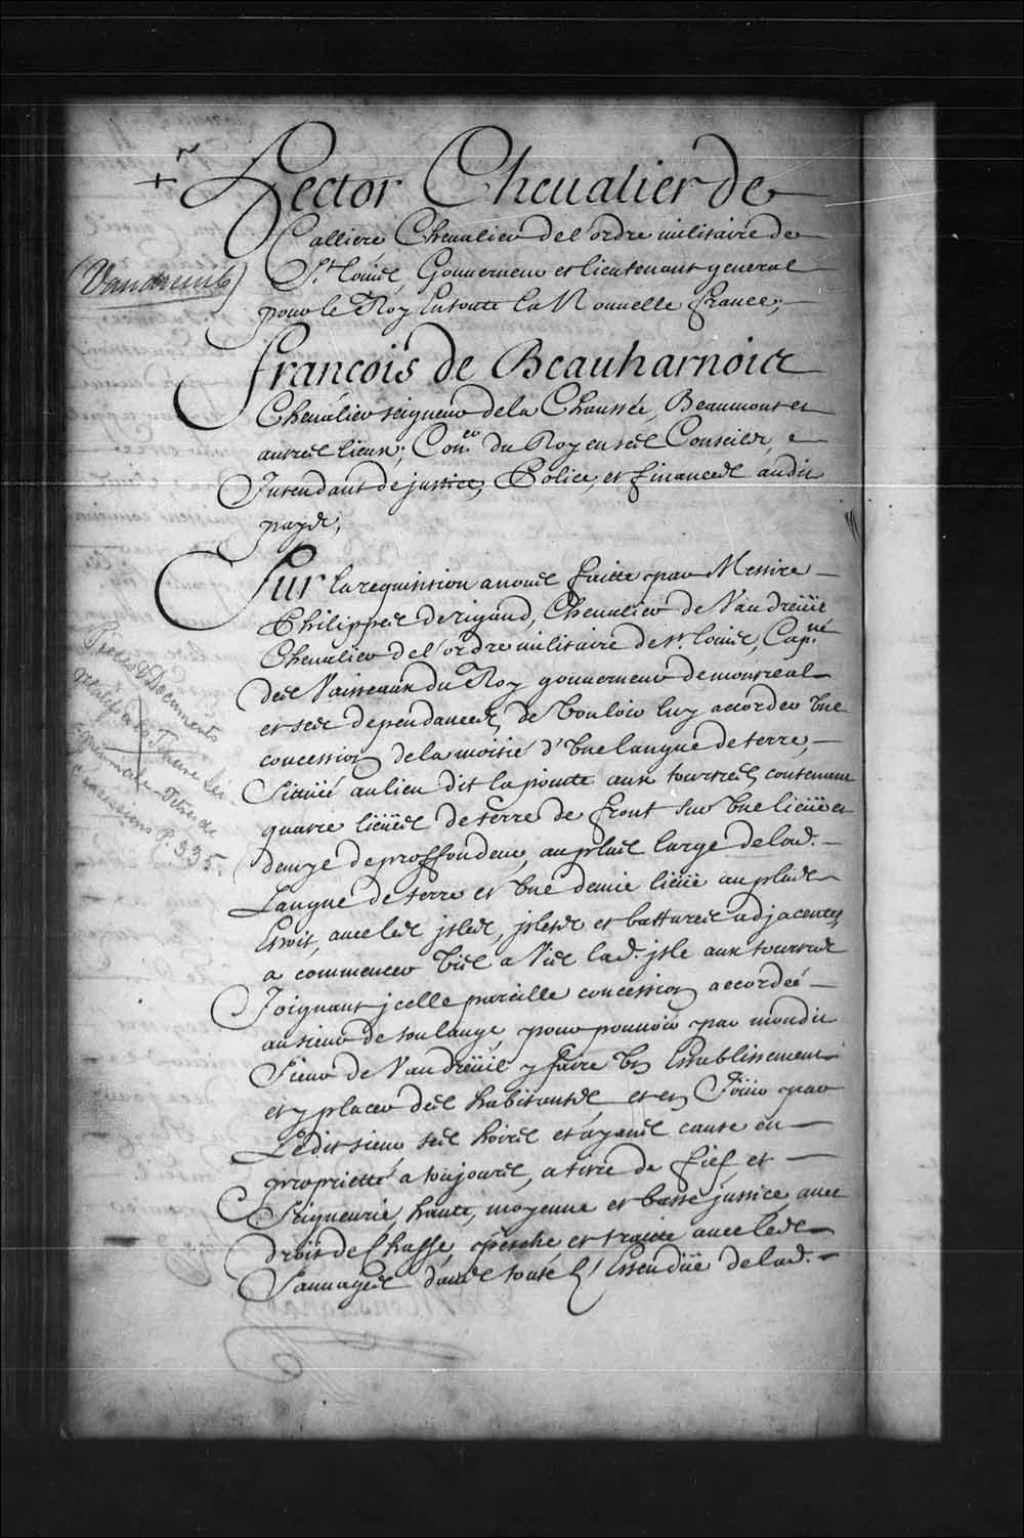 Hector Chevalier de
Calliere Chevalier de l'ordre militaire de
St. Louis, Gouverneur et lieutenant general
pour le Roy En toute la Nouvelle france;
(Vaudreuil)
François de Beauharnois
Chevalier seigneur de la Chaussée, Beaumont et
autres lieux; Con.er du Roy en ses Conseils,
Intendant de justice, Police, et finances audit
pays;
Sur la requisition a nous faitte par Messire
Philippes de rigaud, Chevalier de Vaudreüil
Chevalier de l'ordre militaire de st. Louis, Cap.ne
des Vaisseaux du Roy gouverneur de montreal
et ses dependances, de Vouloir luy accorder Vne
concession de la moitié d'Vne langue de terre,
Scituée au lieu dit la pointe aux tourtes, contenant
quatre lieües de terre de front sur Vne lieüe et
demye de proffondeur, au plus large de lad.
Langue de terre et Vne demie lieüe au plus
Estroit, avec les isles, islets et battures adjacentes
a commencer Vis a Vis lad. isle aux tourtes
Joignant icelle pareille concession accordée
au sieur de soulange, pour pouvoir par mondit
Sieur de Vaudreüil y faire Vn Establissement
et y placer des habitants, et en Joüir par
Ledit sieur ses hoirs et ayans cause en
proprietté a toujours, a titre de fief, et
Seigneurie, haute, moyenne et basse justice, avec
droit de Chasse, pesche et traitte avec les
Sauvages dans toute l'Estendüe de lad.
Pièces & Documents
relatifs à la Tenure Sei-
gneuriale - Titres de
Concessions P. 335.